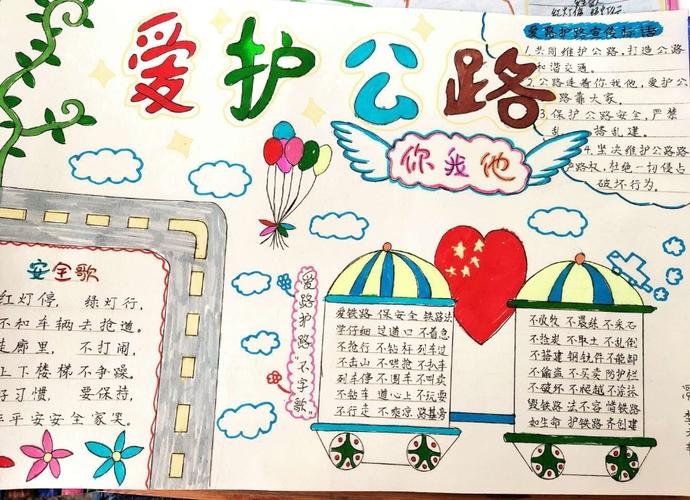 爱护公路
你我他
爱路护路宣传标语
1.共同维护公路,打造公路
和谐交通。
2.公路连着你我他,爱护公
路靠大家。
3.保护公路安全,严禁
乱搭乱建。
4.坚决维护公路路
护路权,杜绝一切侵占
破坏行为。
安全歌
红灯停, 绿灯行,
不和车辆去抢道。
走廊里, 不打闹,
上下楼梯不争躁。
好习惯, 要保持,
平平安安全家笑。
爱路护路"不字歌"
爱铁路 保安全 铁路法
学仔细 过道口 不着急
不抢行 不钻杆 列车过
不击山 不哄抢 不扒车
列车停 不围车 不叫卖
不钻车 道心上 不玩耍
不行走 不乘凉 路基旁
不放牧 不晨练 不采石
不拾炭 不取土 不乱倒
不搭建 钢铁件 不能卸
不偷盗 不买卖 防护栏
不破坏 不爬越 不涂抹
毁铁路 法不容 惜铁路
如生命 护铁路 齐创建